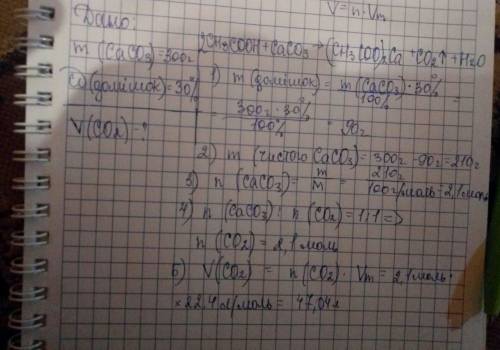 V=n·Vm
Дано:
m (CaCO3)=300г
2CH3COOH+CaCO3→(CH3COO)2Ca+CO2↑+H2O
ω(домішок)=30%
1) m (домішок) = m (CaCO3)·30% / 100% =
= 300г·30% / 100% = 90г
V(CO2)-?
2) m (чистого CaCO3)=300г-90г=210г
3) n (CaCO3)= m/M = 210г / 100г/моль =2,1моль
4) n (CaCO3) : n (CO2)=1:1=>
n (CO2)=2,1моль
5) V(CO2) = n(CO2)·Vm=2,1моль·
×22,4л/моль=47,04л